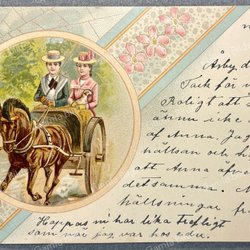 Åsby d
Tack för v
Roligt att
ännu icke
af Anna. Jag
hälsan och h
att Anna äfve
detsamma.
hälsningar
Hoppas ni har lika trefligt
som när jag var hos eder.